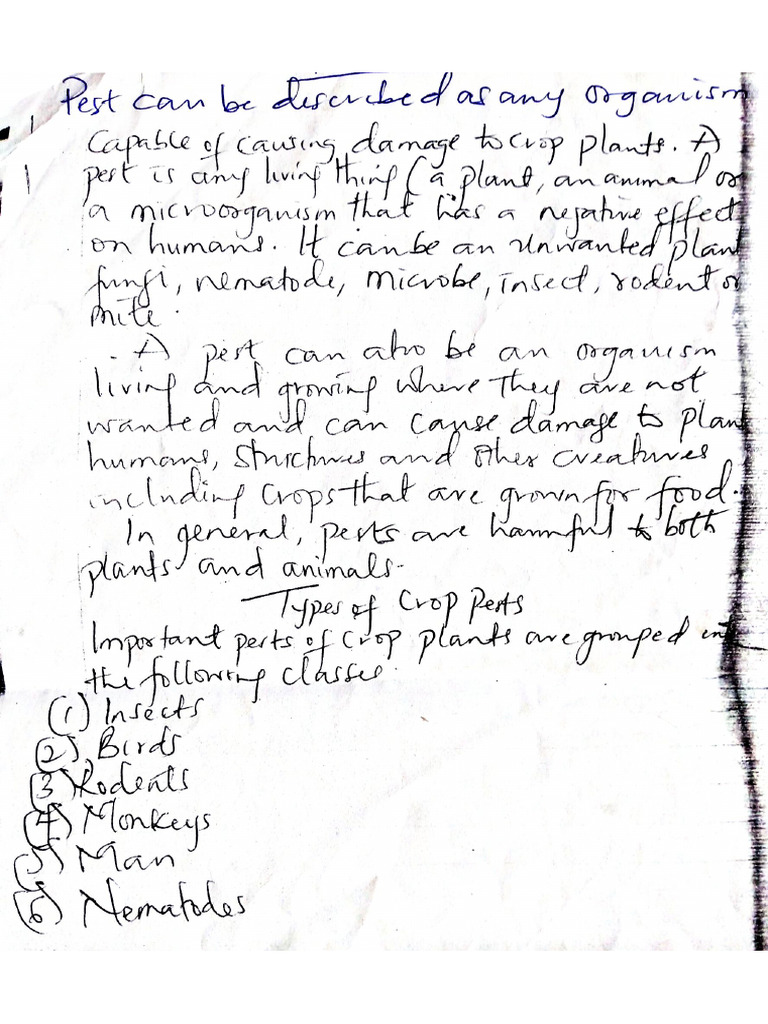 Pest can be described as any organism
Capable of causing damage to crop plants. A
pest is any living thing (a plant, an animal or
a microorganism that has a negative effect
on humans. It can be an unwanted plant
fungi, nematode, microbe, insect, rodent or
mite.
. A pest can also be an organism
living and growing where they are not
wanted and can cause damage to plant
humans, structures and other creatures
including crops that are grown for food.
In general, pests are harmful to both
plants and animals.
Types of Crop Pests
Important pests of crop plants are grouped into
the following classes.
(1) Insects
(2) Birds
(3) Rodents
(4) Monkeys
(5) Man
(6) Nematodes